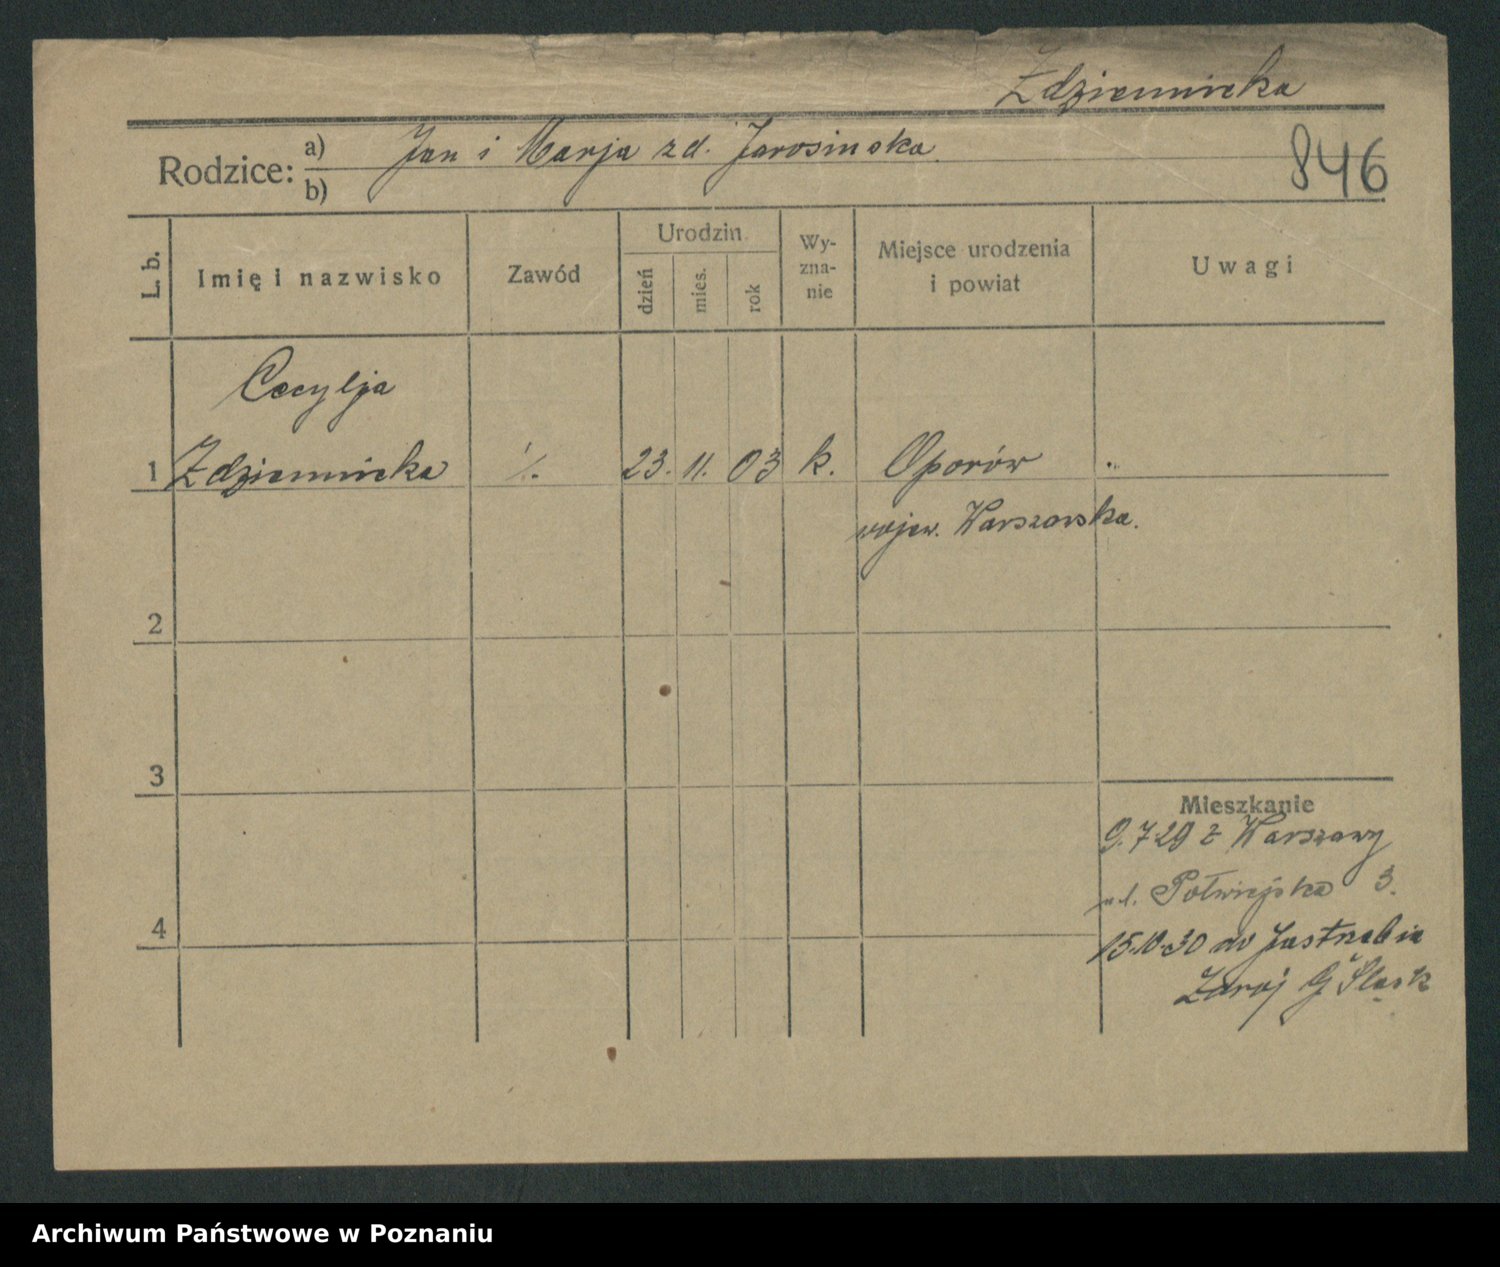 Zdziennicka
Rodzice: a) Jan i Marja zd. Jarosinska.
b)
846
L. b.
Imię i nazwisko
Zawód
Urodzin
dzień
mies.
rok
Wy-
zna-
nie
Miejsce urodzenia
i powiat
Uwagi
Cecylja
1 Zdziennicka % 23. 11. 03 k. Oporów
wojew. Warszawska.
2
3
Mieszkanie
9.7.29 z Warszawy
ul. Półwiejska 3.
4
15.10.30 do Jastrzebia
Zdroj G Śląsk
Archiwum Państwowe w Poznaniu